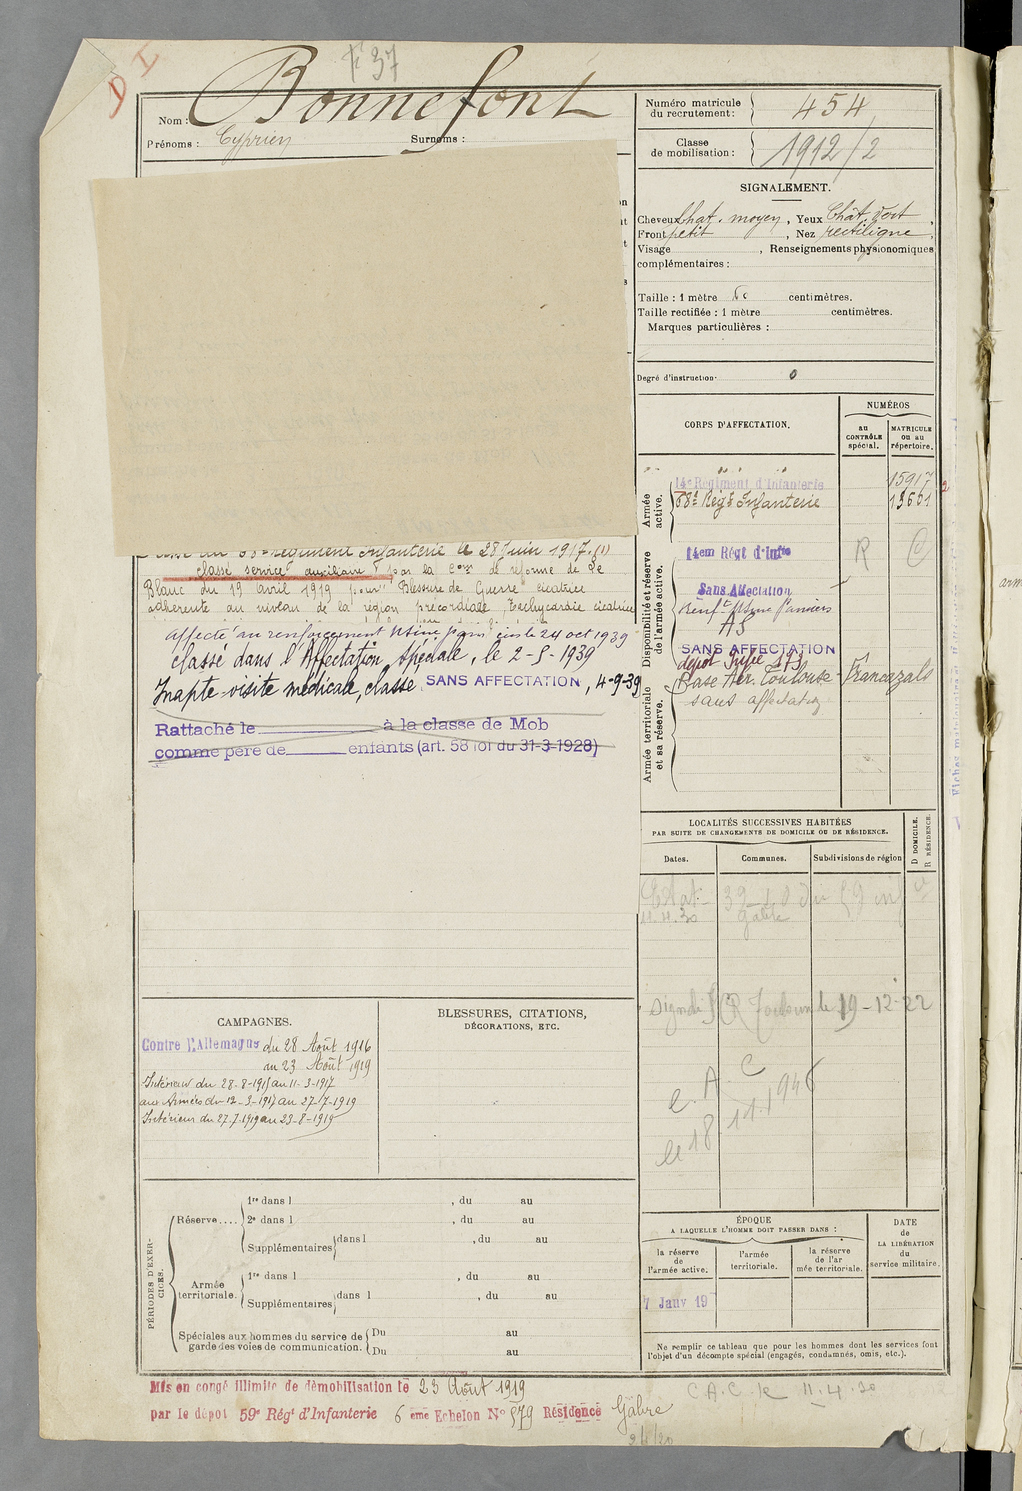 D I
F 37
Nom : Bonnefont
Prénoms : Cyprien Surnoms :
Numéro matricule du recrutement : 454
Classe de mobilisation : 1912/2
SIGNALEMENT.
Cheveux chat. moyen, Yeux Chât. vert,
Front petit, Nez rectiligne,
Visage , Renseignements physionomiques
complémentaires :
Taille : 1 mètre centimètres.
Taille rectifiée : 1 mètre centimètres.
Marques particulières :
Degré d'instruction. 0
CORPS D'AFFECTATION.
NUMÉROS
au CONTRÔLE spécial.
MATRICULE ou au répertoire.
Armée active.
14e Régiment d'Infanterie 15917
68e Régt Infanterie
Disponibilité et réserve de l'armée active.
14em Régt d'Infie R C
Sans Affectation
AS
SANS AFFECTATION
Armée territoriale et sa réserve.
Base Aér. Toulouse - Francazals
sans affectation
68e régiment Infanterie le 28 Juin 1917. (1)
classé service auxiliaire par la Com de réforme de Le
Blanc du 19 Avril 1919 pour Blessure de Guerre cicatrice
adhérente au niveau de la région précordiale, Tachycardie cicatrice
affecté au renforcement Usine Pamiers le 24 oct 1939
classé dans l'Affectation Spéciale, le 2-9-1939
Inapte visite médicale, classé SANS AFFECTATION, 4-9-39
Rattaché le à la classe de Mob
comme père de enfants (art. 58 loi du 31-3-1928)
LOCALITÉS SUCCESSIVES HABITÉES
PAR SUITE DE CHANGEMENTS DE DOMICILE OU DE RÉSIDENCE.
Dates.
Communes.
Subdivisions de région
D DOMICILE.
R RÉSIDENCE.
11.4.20 Gabre
Toulouse le 19-12-22
C A C
le 18 11.1946
CAMPAGNES.
Contre l'Allemagne du 28 Août 1916
au 23 Août 1919
Intérieur du 28-8-1916 au 11-3-1917
aux Armées du 12-3-1917 au 27-7-1919
Intérieur du 27.7.1919 au 23-8-1919
BLESSURES, CITATIONS,
DÉCORATIONS, ETC.
PÉRIODES D'EXERCICES.
Réserve....
1re dans l , du au
2e dans l , du au
Supplémentaires dans l , du au
Armée territoriale.
1re dans l , du au
Supplémentaires dans l , du au
Spéciales aux hommes du service de garde des voies de communication.
Du au
Du au
ÉPOQUE
A LAQUELLE L'HOMME DOIT PASSER DANS :
la réserve de l'armée active.
l'armée territoriale.
la réserve de l'armée territoriale.
DATE de LA LIBÉRATION du service militaire.
7 Janv 19
Ne remplir ce tableau que pour les hommes dont les services font
l'objet d'un décompte spécial (engagés, condamnés, omis, etc.).
Mis en congé illimité de démobilisation le 23 Août 1919
par le dépot 59e Régt d'Infanterie 6 ème Echelon No 579 Résidence Gabre
C.A.C. le 11.4.20